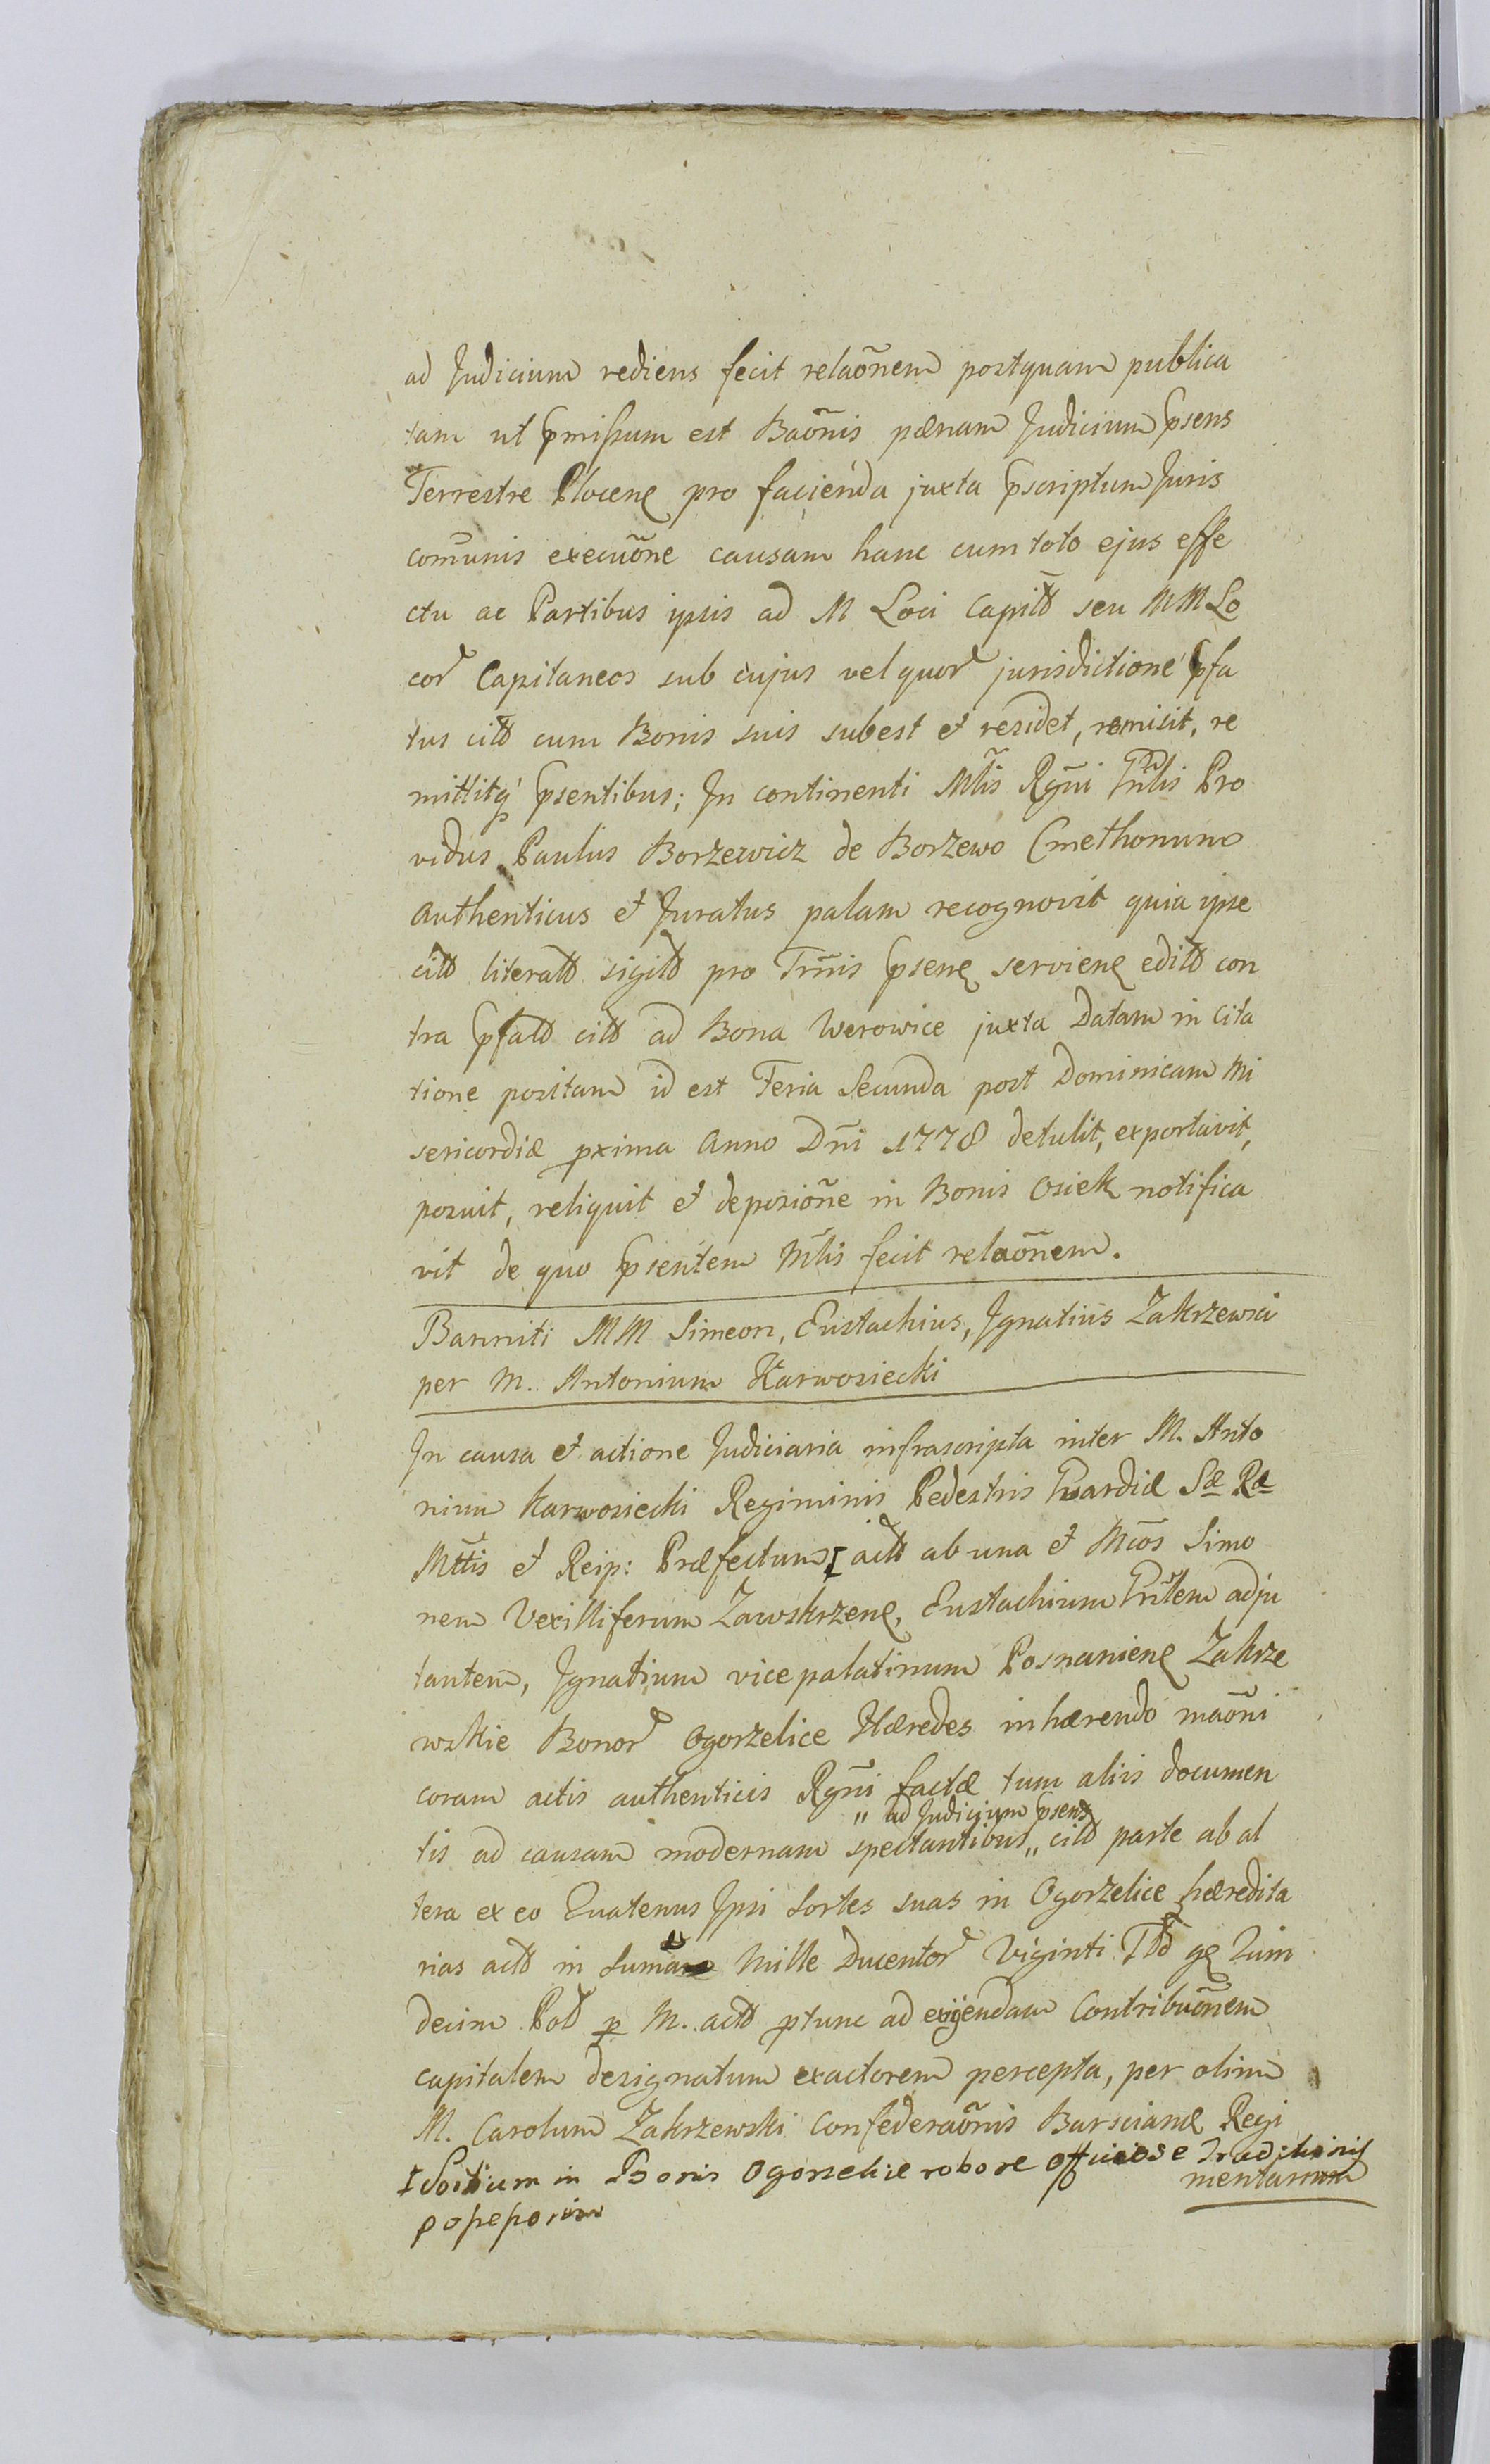 ad Judicium rediens fecit relaõnem postquam publica
tam ut pmissum est Baõnis pænam Judicium psens
Terrestre Plocen pro facienda juxta pscriptum Juris
com̃unis execuõne causam hanc cum toto ejus effe
ctu ac Partibus ipsis ad M Loci Capitt seu MM Lo
cor Capitaneos sub cujus vel quor jurisdictione pfa
tus citt cum Bonis suis subest et residet, remisit, re
mittitq psentibus; In continenti Mlis Rgñi Gñlis Pro
vidus Paulus Borzewicz de Borzewo Cmethonum
authenticus et Juratus palam recognovit quia ipse
citt literatt sigitt pro Trñis psen servien editt con
tra pfatt citt ad Bona Werowice juxta Datam in Cita
tione positam id est Feria Secunda post Dominicam Mi
sericordiæ pxima Anno Dñi 1778 detulit, exportavit,
posuit, reliquit et deposiõne in Bonis Osiek notifica
vit de quo psentem Mlis fecit relaõnem.
Banniti MM Simeon, Eustachius, Ignatius Zakrzewsci
per M. Antonium Karwosiecki
In causa et actione Judiciaria infrascripta inter M. Anto
nium Karwosiecki Regiminis Pedestris Gvardiæ Sæ Ræ
Mttis et Reip: Præfectum actt ab una et Mcos Simo
nem Vexilliferum Zawskrzen, Eustachium Gñlem adju
tantem, Ignatium vice palatinum Posnanien Zakrze
wskie Bonor Ogorzelice Hæredes inhærendo maõni
coram actis authenticis Rgñi factæ tum aliis documen
„ ad Judicium psens
tis ad causam modernam spectantibus „ citt parte ab al
tera ex eo Quatenus Ipsi Sortes suas in Ogorzelice hæredita
rias actt in Sum̃a Mille Ducentor Viginti Tt g Quin
decim Pol p M. actt ptunc ad exigendam Contribuõnem
capitalem designatum exactorem percepta, per olim
M. Carolum Zakrzewski Confederaõnis Barscianæ Regi
mentarium
Sortium in Bonis Ogorzelice robore officiose traditionis